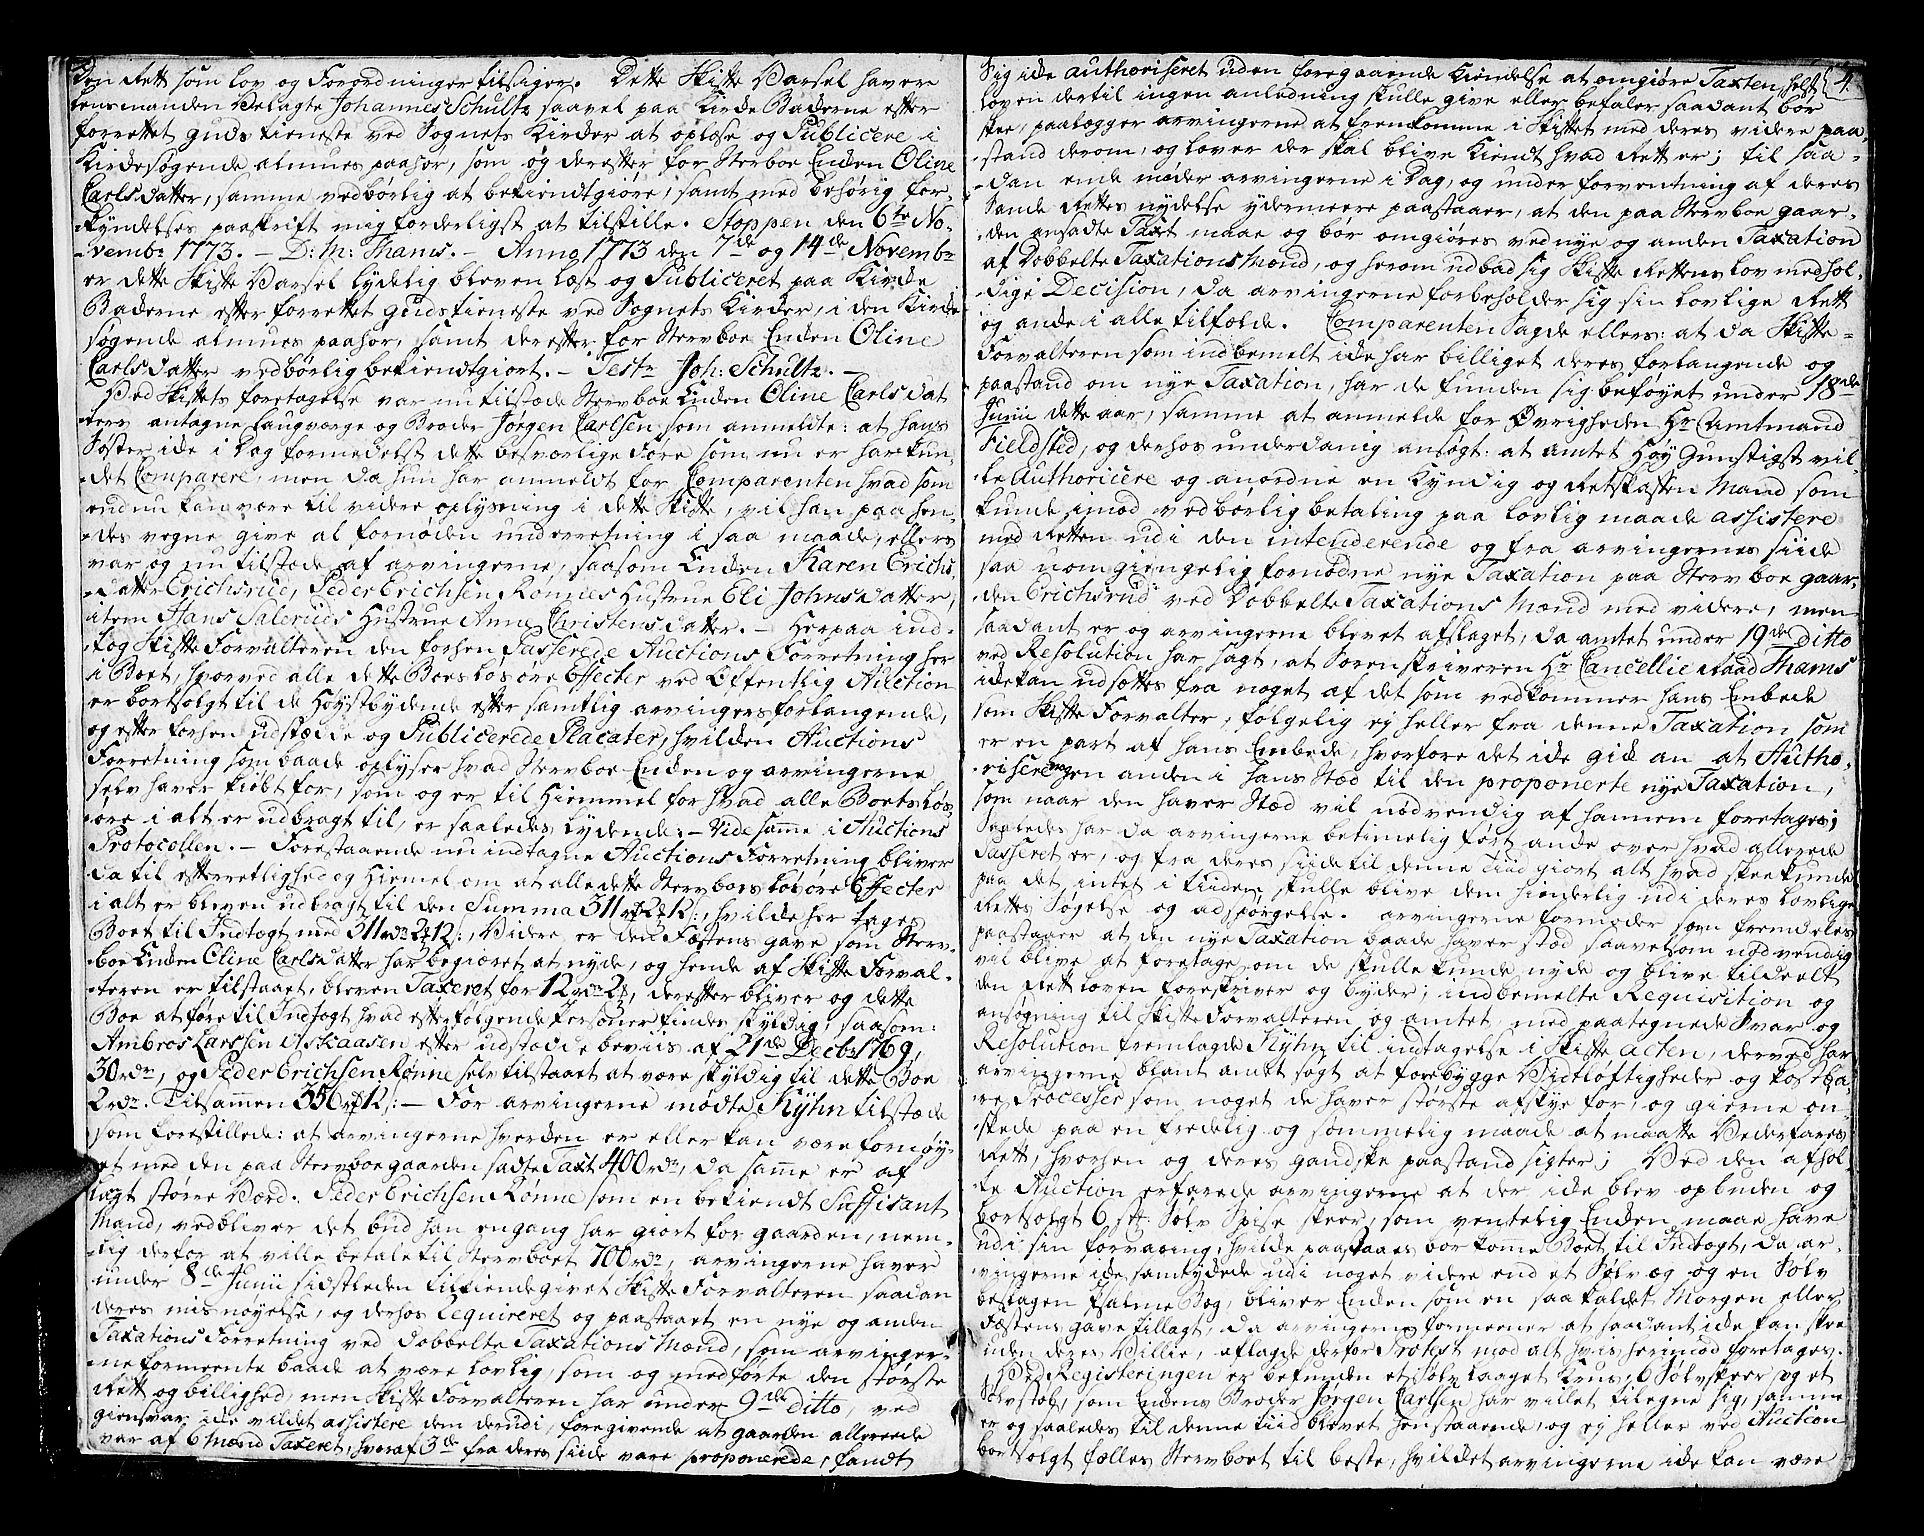 den Rett som lov og Forordninger tilsiger. Dette Skifte Varsel haver
lensmanden Velagte Johannes Schultz saavel paa Kirke Backerne efter
forrettet guds tieneste ved Sognets Kirker at oplæse og Publicere i
Kirkesøgende almues paahør, som og derefter for Stervboe Enken Oline
Carlsdatter, samme vedbørlig at bekiendtgiøre, samt med behørig for-
kyndelses paaskrift mig forderligst at tilstille. Stoppen den 6te No-
vembr 1773. - D: M: Thams. - Anno 1773 den 7de og 14de Novembr
er dette Skifte Varsel lydelig bleven læst og Publiceret paa Kirke
Backerne efter forrettet guds tieneste ved Sognets Kirker, i den Kirke
søgende almues paahør, samt derefter for Stervboe Enken Oline
Carlsdatter vedbørlig bekiendtgiort. - Test Joh: Schultz. -
Ved Skiftets foretagelse var nu tilstæde Stervboe Enken Oline Carlsdat
ters antagne Laugværge og Broder Jørgen Carlsen, som anmeldte: at hans
Søster icke i Dag formedelst dette besværlige føre som nu er har kun-
det Comparere, men da hun har anmeldt for Comparenten hvad som
endnu kan være til videre oplysning i dette Skifte, vil han paa hen-
des vegne give al fornøden underretning i saa maade, ellers
var og nu tilstæde af arvingerne, saasom Enken Karen Erichs
datter Erichsrud, Peder Erichsen Rønnes Hustrue Eli Johnsdatter,
item Hans Saleruds Hustrue Anne Christensdatter. - Herpaa ind-
tog Skifte Forvalteren den forhen Passerede Auctions Forretning her
i Boet, hvorved alle dette Boes løsøre Effecter ved Offentlig Auction
er bortsolgt til de Høystbydende efter samtlig arvingers forlangende,
og efter forhen udstædde og Publicerede Placater, hvilken Auctions
Forretning som baade oplyser hvad Stervboe Enken og arvingerne
selv haver kiøbt for, som og er til Hiemmel for hvad alle Boets løs-
øre i alt er udbragt til, er saaledes lydende: - Vide samme i Auctions
Protocollen. - Forestaaende nu indtagne Auctions Forretning bliver
da til efterretlighed og Hiemel om at alle dette Stervboes løsøre Effecter
i alt er bleven udbragt til den Summa 311 rd 2 12 s:, hvilke her tages
Boet til Indtægt med 311 rdr 2 12:, Videre er den Fæstens gave som Sterv-
boe Enken Oline Carlsdatter har begiæret at nyde, og hende af Skifte Forval-
teren er tilstaaet, bleven Taxeret for 12 rdr 2, derefter bliver og dette
Boe at føre til Indtægt hvad efterfølgende Personer findes skyldig, saasom:
Ambros Larssen efter udstædde beviis af 21de Decbr 1769,
30 rdr, og Peder Erichsen Rønne selv tilstaaet at være skyldig til dette Boe
2 rdr. Tilsammen 356 rd 12 s: - For arvingerne mødte Kyhn tilstæde
som forestillede: at arvingerne hverken er eller kan være fornøy-
et med den paa Stervboe gaarden sadte Taxt 400 rdr, da samme er af
langt større Værd. Peder Erichsen Rønne som en bekiendt Suffisant
Mand, vedbliver det bud han engang har giort for gaarden, nem-
lig derfor at ville betale til Stervboet 700 rdr, arvingerne haver
under 8de Junii sidstleden tilkiendegivet Skifte Forvalteren saadan
deres misnøyelse, og derhos Requireret og paastaaet en nye og anden
Taxations Forretning ved dobbelte Taxations Mænd, som arvinger-
ne formeente baade at være lovlig, som og medførte den største
Rett og billighed, men Skifte Forvalteren har under 9de ditto, ved
giensvar icke vildet assistere dem derudi, foregivende at gaarden allereede
var af 6 Mænd Taxeret, hvoraf 3de fra deres siide vare proponerede, fandt
4.
Sig icke authoriseret uden foregaaende Kiendelse at omgiøre Taxten, helst
loven dertil ingen anledning skulle give eller befaler saadant bør
skee, paalægger arvingerne at fremkomme i Skiftet med deres videre paa-
stand derom, og lover der skal blive Kiendt hvad Rett er; til saa-
dan ende møder arvingerne i Dag, og under forventning af deres
Sande Rettes nydelse ydermeere paastaaer, at den paa Stervboe gaar-
den ansadte Taxt maae og bør omgiøres ved nye og anden Taxation
af Dobbelte Taxations Mænd, og herom udbad sig Skifte Rettens lov medhol-
dige Decision, da arvingerne forbeholder sig sin lovlige Rett
og anke i alle tilfælde. Comparenten sagde ellers: at da Skifte-
Forvalteren som indbemelt icke har billiget deres forlangende og
paastand om nye Taxation, har de funden sig beføyet under 18nde
Junii dette aar, samme at anmelde for Øvrigheden Hr Amtmand
Fieldsted, og derhos underdanig ansøgt: at amtet Høy Gunstigst vil-
le Authoricere og anordne en Kyndig og Retskaffen Mand som
kunde imod vedbørlig betaling paa lovlig maade assistere
med Retten udi den intenderende og fra arvingernes siide
saa uomgiengelig fornødne nye Taxation paa Stervboe gaar-
den Erichsrud ved Dobbelte Taxations Mænd med videre, men
saadant er og arvingerne blevet afslaget, da amtet under 19de ditto
ved Resolution har sagt, at Sorenskriveren Hr Cancellie Raad Thams
icke kan udsættes fra noget af det som vedkommer hans Embede
som Skifte Forvalter, følgelig ey heller fra denne Taxation som
er en part af hans Embede, hvorfore det icke gik an at Autho-
risere nogen anden i hans stæd til den proponerte nye Taxation,
som naar den haver Stæd vil nødvendig af hannem foretages;
Saaledes har da arvingerne betimelig ført anke over hvad allerede
Passeret er, og fra deres siide til denne tiid giort alt hvad skee kunde
paa det, intet i tiiden skulle blive dem hinderlig udi deres lovlige
Rettes Søgelse og adspørgelse. arvingerne formoder som fremdeles
paastaaer at den nye Taxation baade haver stæd saavelsom nødvendig
vil blive at foretage om de skulle kunde nyde og blive tildeelt
den Rett loven foreskriver og byder; indbemelte Requisition og
ansøgning til Skifte Forvalteren og amtet, med paategnede Svar og
Resolution fremlagde Kyhn til indtagelse i Skifte acten, derved har
arvingerne blant andet søgt at forebygge Vidtløftigheder og kostba-
re Processer som noget de haver største afskye for, og gierne øn-
skede paa en fredelig og sømmelig maade at maatte Vederfares
Rett, hvorhen og deres gandske paastand sigter; Ved den afhol-
te Auction erfarede arvingerne at der icke blev opbuden og
bortsolgt 6 st: Sølv Spise skeer, som ventelig Enken maae have
udi sin forvaring, hvilke paastaaes bør komme Boet til Indtægt, da ar-
vingerne icke samtykkede udi noget videre end et Sølv æg og en Sølv
beslagen Psalme Bog, bliver Enken som en saa kaldet Morgen eller
Fæstens gave tillagt, da arvingerne formeener at saadant icke kan skee
uden deres Villie, aflagde derfor Protest mod alt hvis herimod foretages.
Ved Registeringen er befunden et sølv laaget Krus, 6 Sølvskeer og et
som Enkens Broder Jørgen Carlsen har villet tilegne sig, samme
er og saaledes til denne tiid blevet henstaaende, og ey heller ved Auction
bortsolgt fælles Stervboet til beste, hvilket arvingerne icke kan være